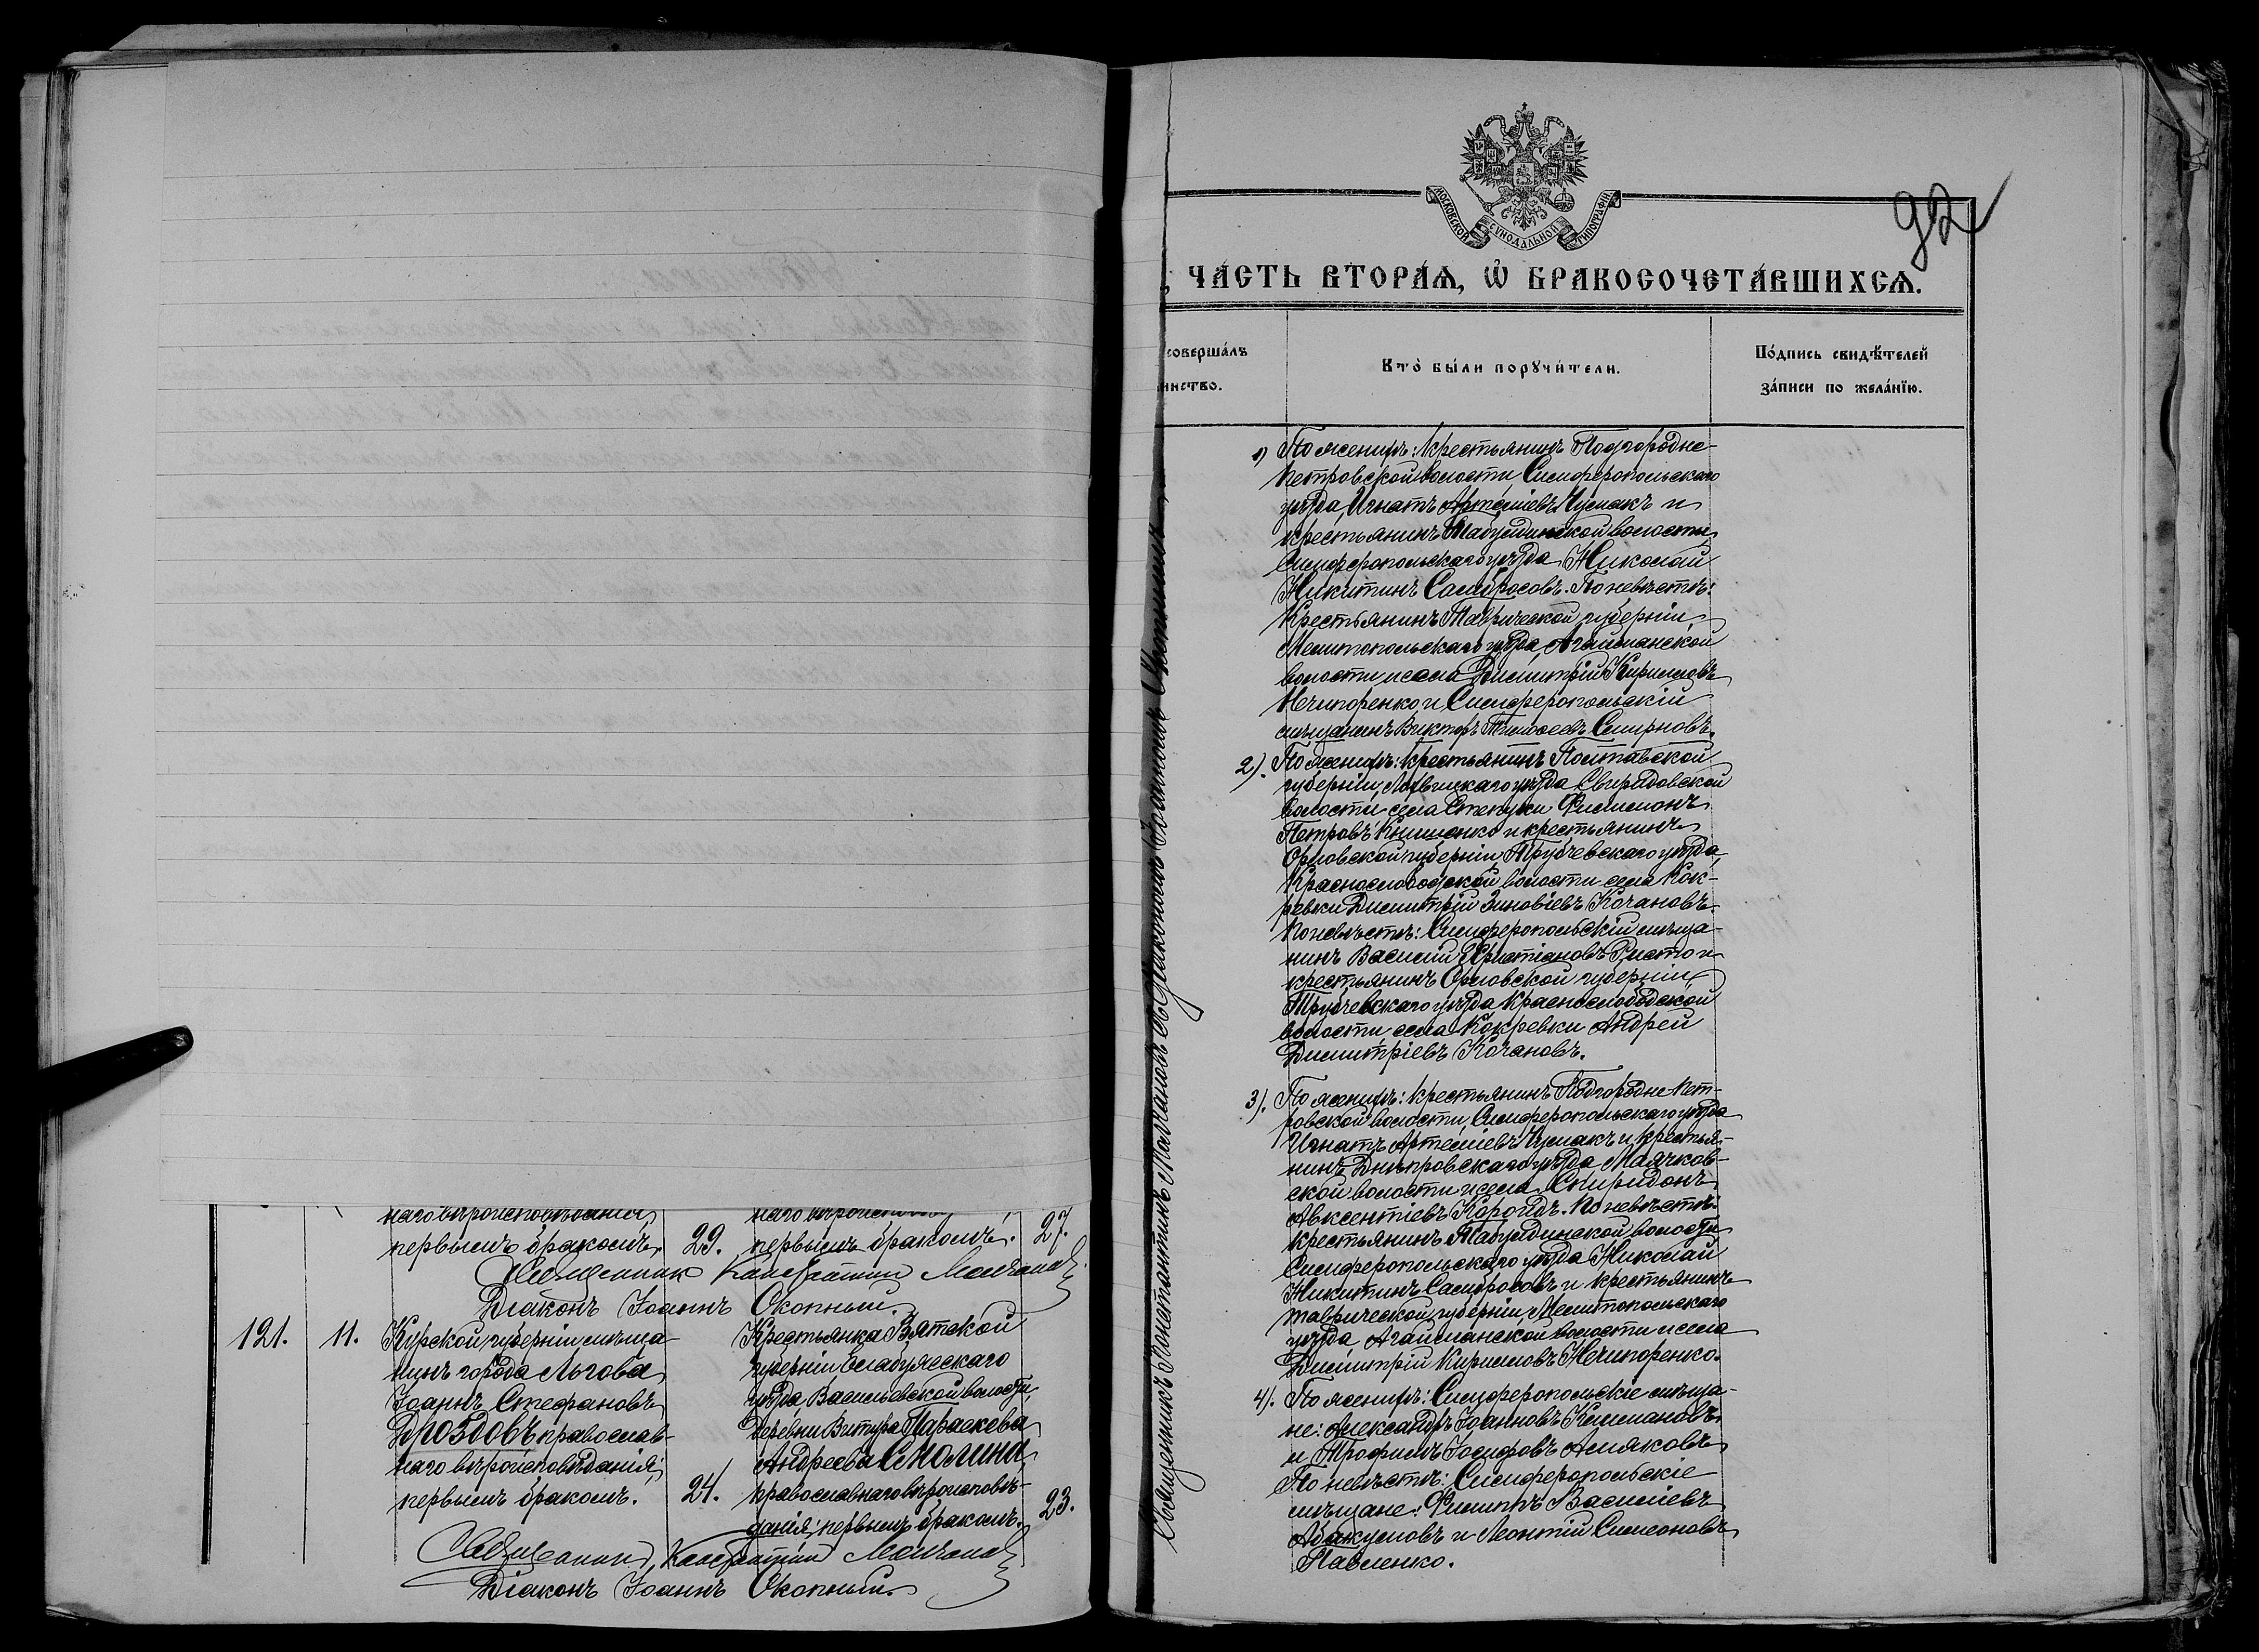 наго вѣроисповѣданія,
первымъ бракомъ.
29.
первымъ бракомъ.
27.
Священникъ Константинъ Молчановъ
Діаконъ Іоаннъ Окопный.
121.
11.
Курской губерніи мѣща-
нинъ города Льгова
Іоаннъ Стефановъ
Дроздовъ православ-
наго вѣроисповѣданія,
первымъ бракомъ.
24.
Крестьянка Вятской
губерніи Елабужскаго
уѣзда, Васильевской волости,
деревни Параскева
Андреева Смолина
православнаго вѣроисповѣ-
данія, первымъ бракомъ.
23.
Священникъ Константинъ Молчановъ
Діаконъ Іоаннъ Окопный.
Священникъ Константинъ Молчановъ съ Діакономъ Іоанномъ Окопнымъ
МОСКОВСКОЙ СѴНОДАЛЬНОЙ ТИПОГРАФІИ
92
ЧА́СТЬ ВТОРА́Ѧ, Ѽ БРАКОСОЧЕТА́ВШИХСѦ.
соверша́лъ
инство.
Кто̀ бы́ли порꙋчи́тели.
По́дпись свидѣ́телей
за́писи по жела́нїю.
1) По женихѣ: Крестьянинъ Подгородне-
Петровской волости Симферопольскаго
уѣзда, Игнатъ Артеміевъ Чумакъ и
крестьянинъ Табулдинской волости
Симферопольскаго уѣзда Николай
Никитинъ Самбросовъ. По невѣстѣ:
Крестьянинъ Таврической губерніи,
Мелитопольскаго уѣзда, Агайманской
волости и села Димитрій Кирилловъ
Нечипоренко и Симферопольскій
мѣщанинъ Викторъ Тимоѳеевъ Смирновъ.
2). По женихѣ: крестьянинъ Полтавской
губерніи, Лохвицкаго уѣзда Свиридовской
волости, села Филимонъ
Петровъ и крестьянинъ
Орловской губерніи, Трубчевскаго уѣзда,
Краснослободской волости села Кок-
ревки Димитрій Зиновіевъ Кочановъ.
По невѣстѣ: Симферопольскій мѣща-
нинъ Василій Христіановъ и
крестьянинъ Орловской губерніи,
Трубчевскаго уѣзда Краснослободской
волости, села Кокревки Андрей
Димитріевъ Кочановъ.
3). По женихѣ: крестьянинъ Подгородне-Пет-
ровской волости, Симферопольскаго уѣзда
Игнатъ Артеміевъ Чумакъ и крестья-
нинъ Днѣпровскаго уѣзда Маячков-
ской волости и села Спиридонъ
Авксентіевъ. По невѣстѣ:
крестьянинъ Табулдинской волости
Симферопольскаго уѣзда Николай
Никитинъ Самбросовъ и крестьянинъ
Таврической губерніи, Мелитопольскаго
уѣзда, Агайманской волости и села
Димитрій Кирилловъ Нечипоренко.
4). По женихѣ: Симферопольскіе мѣща-
не: Александръ Іоанновъ
и Трофимъ Іосифовъ
По невѣстѣ: Симферопольскіе
мѣщане: Филиппъ Василіевъ
Абакумовъ и Леонтій Симеоновъ
Павленко.